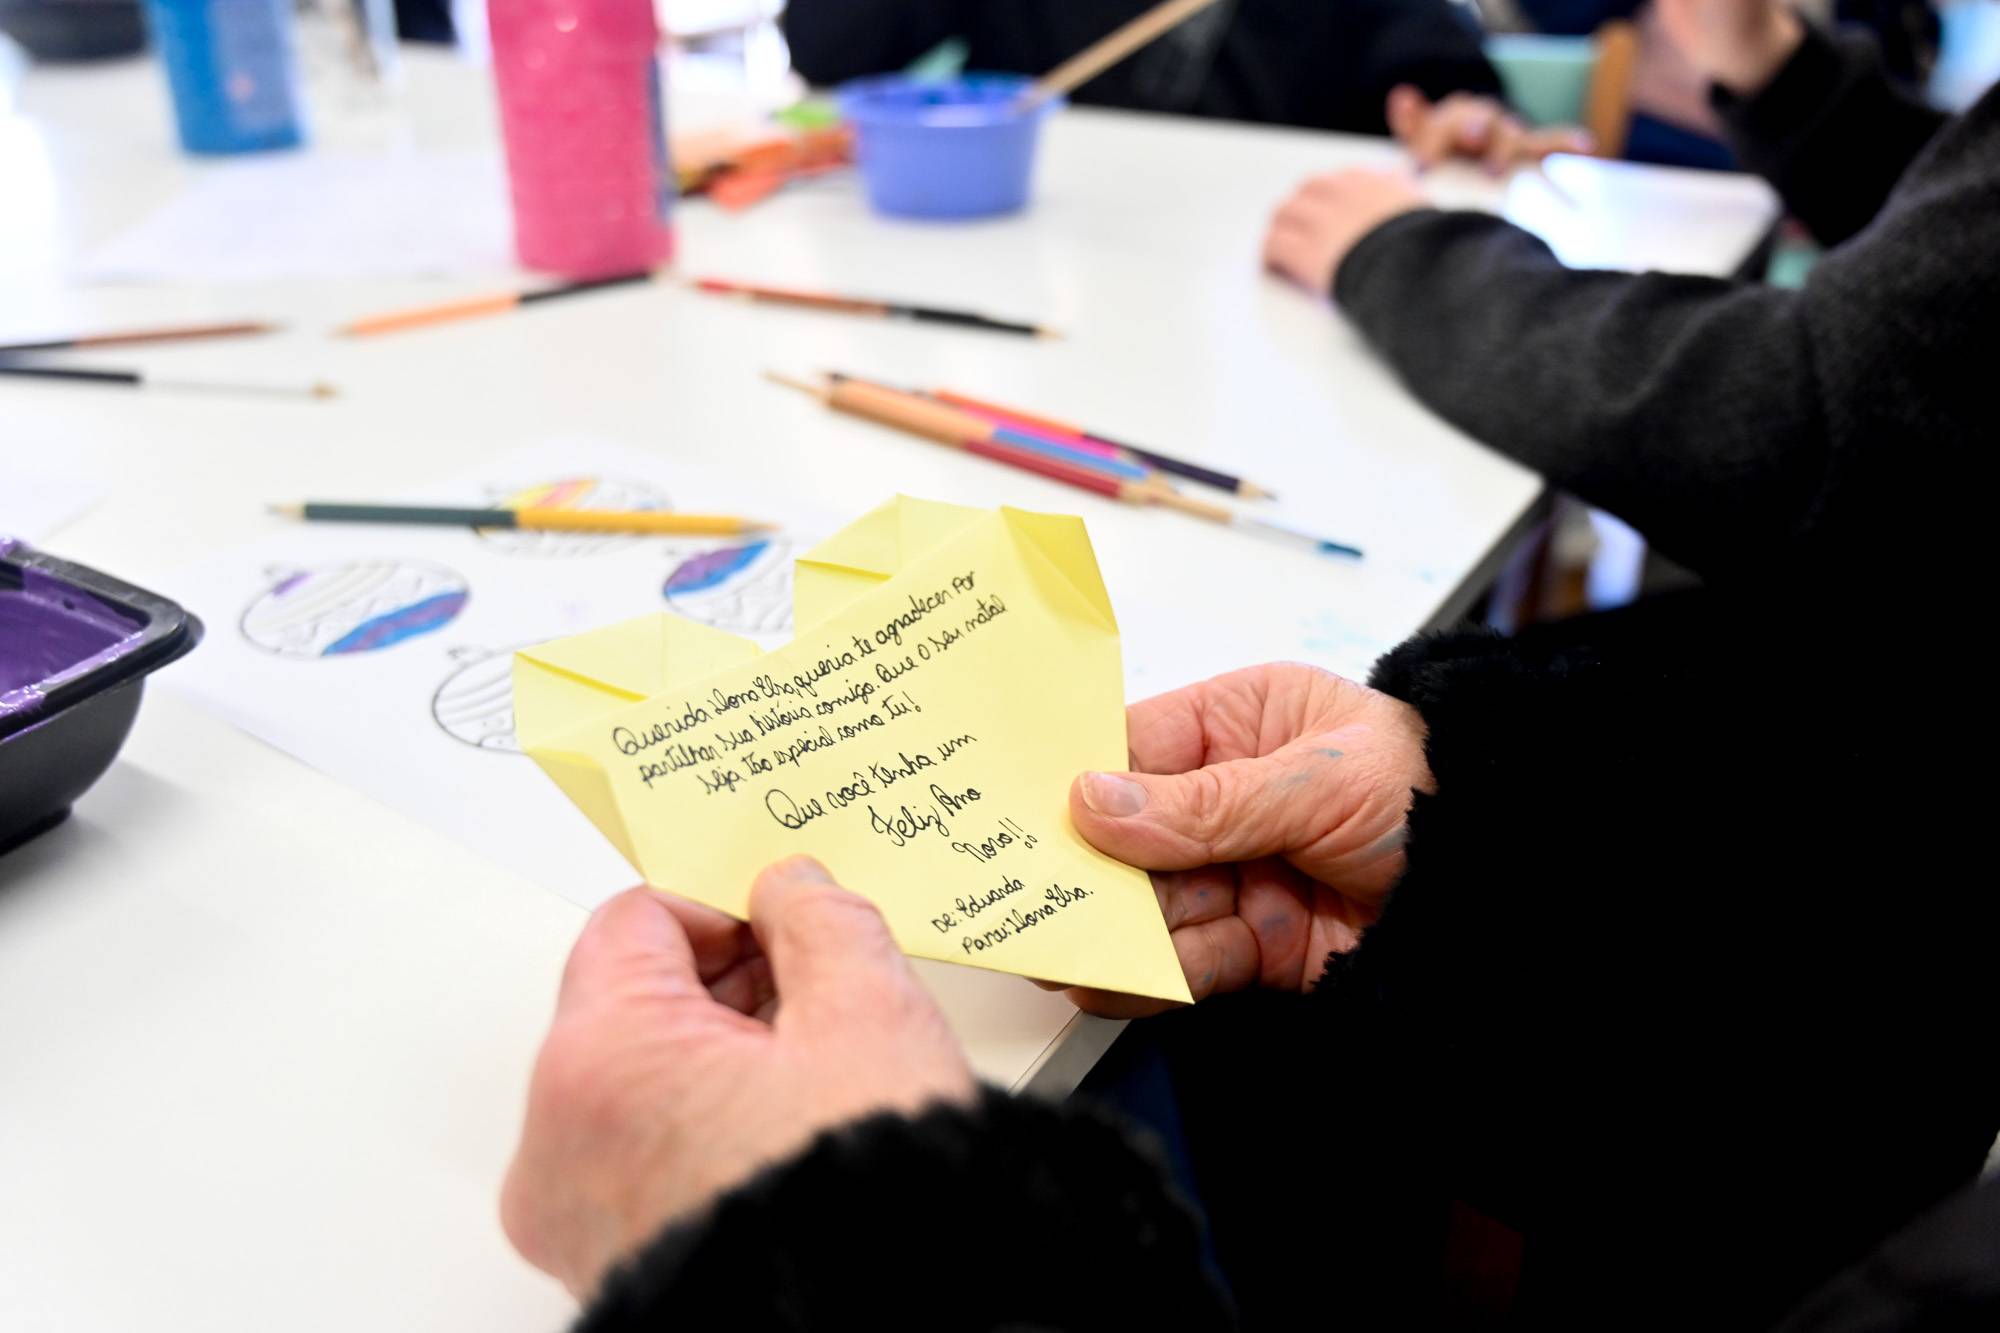 Querida Dona Elsa, queria te agradecer por
partilhar sua história comigo. Que o seu natal
seja tão especial como tu!
Que você tenha um
Feliz Ano
Novo!!
De: Eduarda
Para: Dona Elsa.